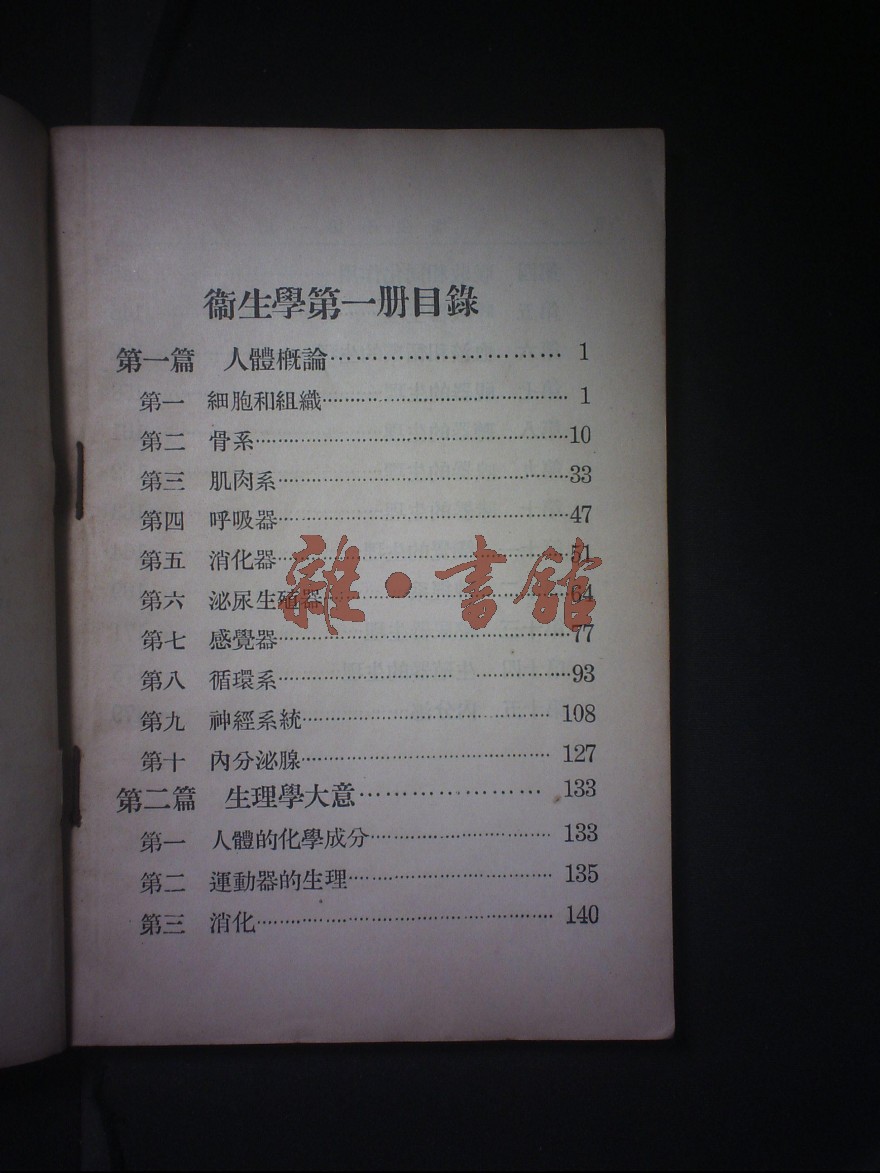 衞生學第一册目錄
第一篇 人體概論………………………… 1
第一 細胞和組織………………………… 1
第二 骨系…………………………10
第三 肌肉系…………………………33
第四 呼吸器…………………………47
第五 消化器…………………………51
第六 泌尿生殖器…………………………64
第七 感覺器…………………………77
第八 循環系…………………………93
第九 神經系統………………………… 108
第十 內分泌腺………………………… 127
第二篇 生理學大意………………… 133
第一 人體的化學成分………………… 133
第二 運動器的生理………………… 135
第三 消化………………………… 140
雜·書館